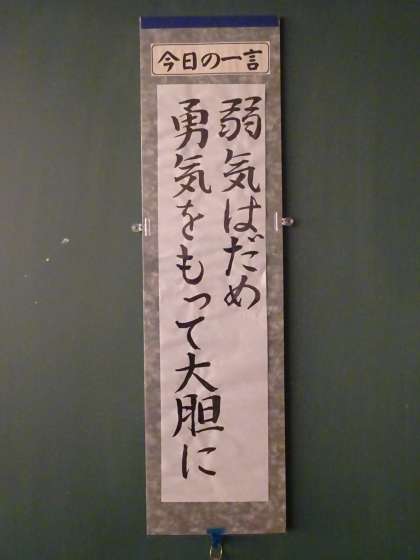 今日の一言
弱気はだめ
勇気をもって大胆に